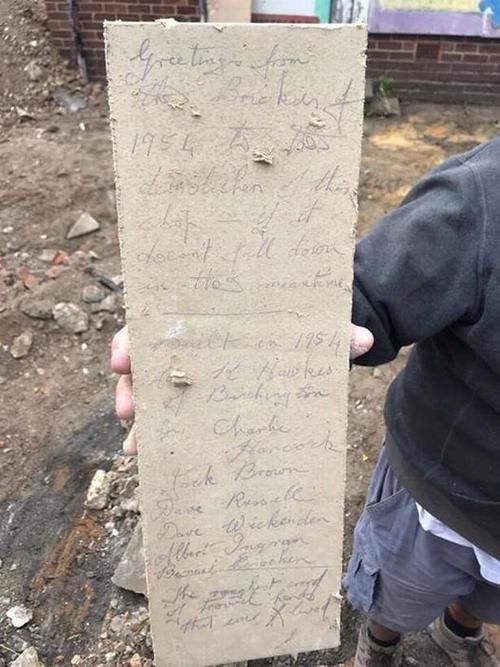 Greetings from
the Brickies of
1954 to the
demolishers of this
shop – if it
doesn't fall down
in the meantime
built in 1954
Hawkes
of Birchington
by Charlie
Hancock
Jock Brown
Dave Russell
Dave Wickenden
Albert Ingram
The roughest crowd
of trowel hands
that ever lived